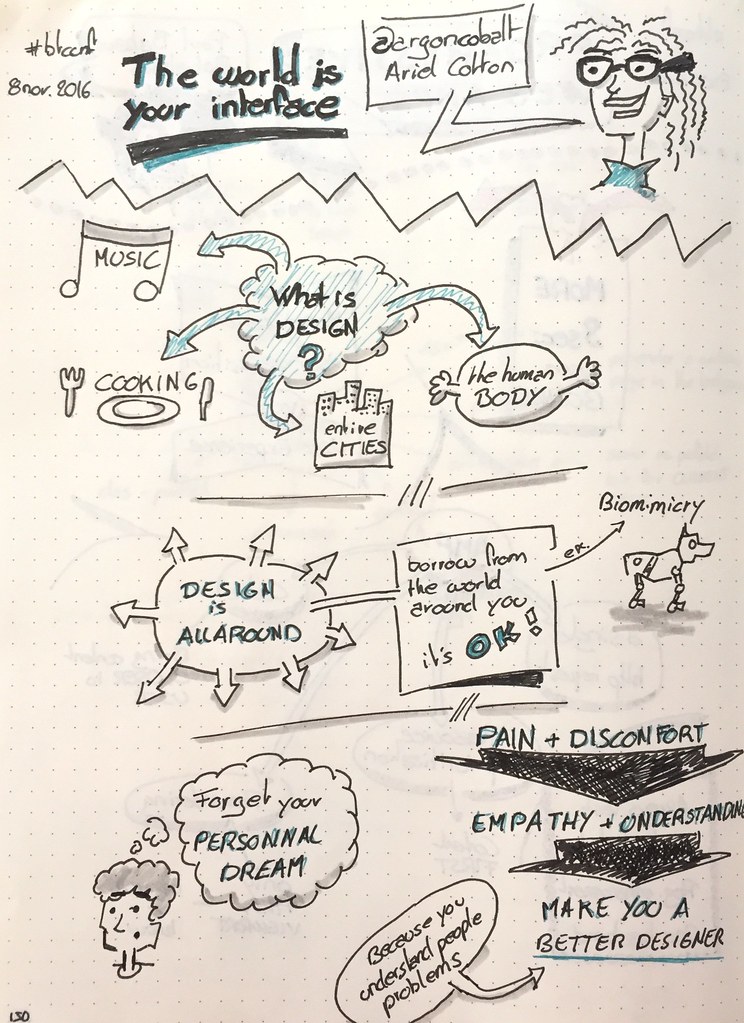 #btconf
8 nov. 2016
The world is
your interface
@argoncobalt
Ariel Cotton
MUSIC
What is
DESIGN
?
COOKING
entire
CITIES
the human
BODY
DESIGN
is
ALL AROUND
borrow from
the world
around you
it's OK!
ex.
Biomimicry
PAIN + DISCONFORT
EMPATHY + UNDERSTANDING
MAKE YOU A
BETTER DESIGNER
Forget your
PERSONNAL
DREAM
Because you
understand people
problems
130